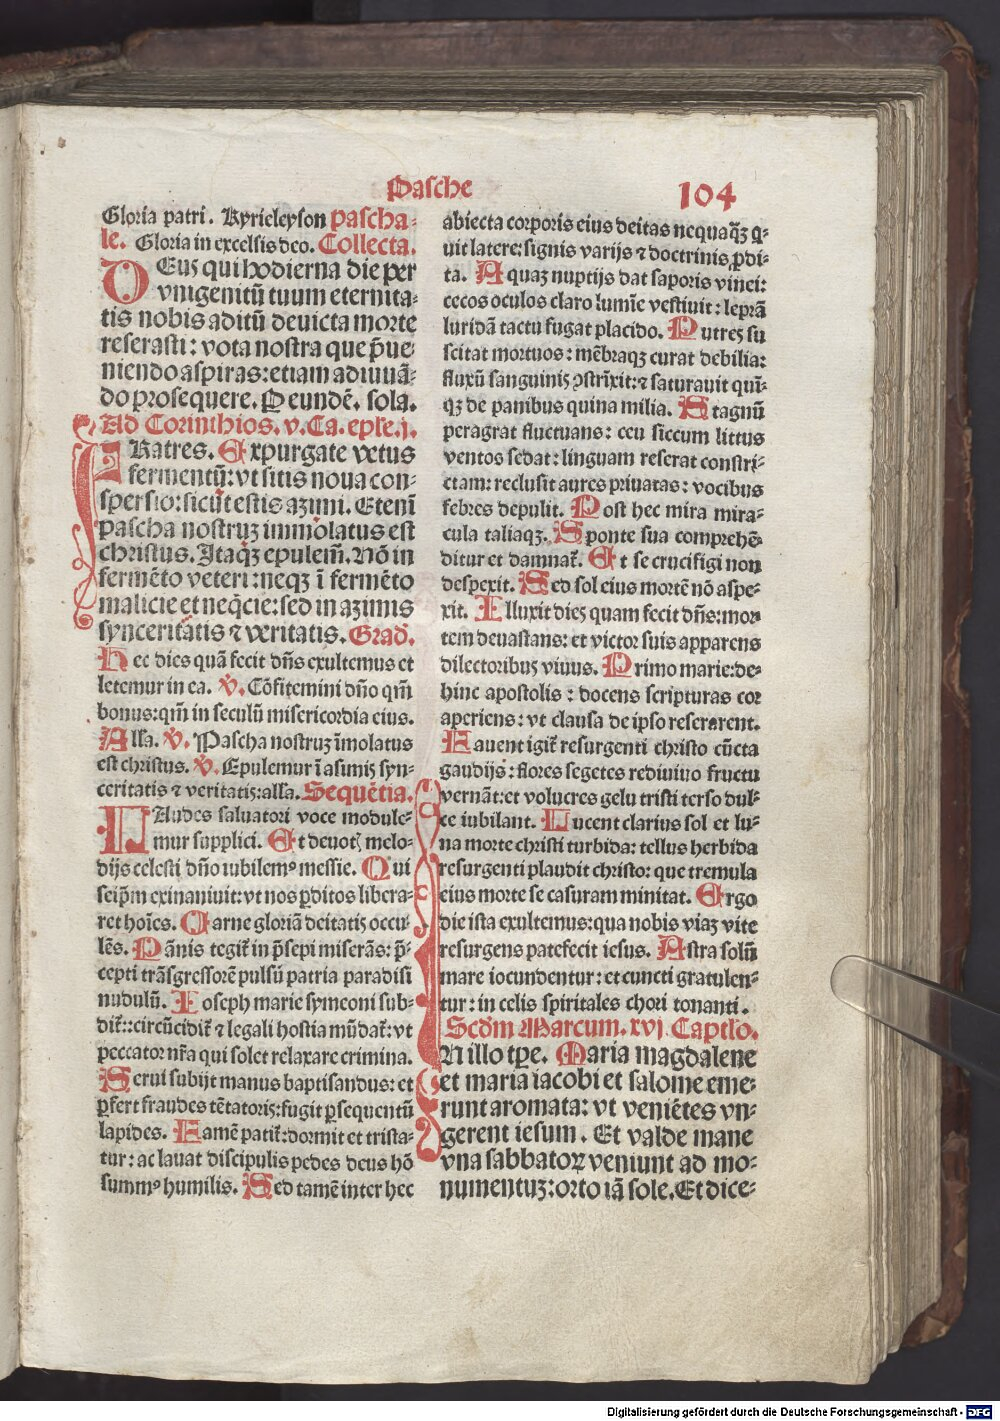 Pasche
104
Gloria patri. Kyrieleyson pascha⸗
le. Gloria in excelsis deo. Collecta.
DEus qui hodierna die per
vnigenitū tuum eternita⸗
tis nobis aditū deuicta morte
reserasti: vota nostra que p̄ue⸗
niendo aspiras: etiam adiuuā⸗
do prosequere. P eundē. sola.
Ad Corinthios. v. Ca. eple. j.
FRatres. Expurgate vetus
fermentū: vt sitis noua con⸗
spersio: sicut estis azimi. Etenī
pascha nostruꝫ immolatus est
christus. Itaqꝫ epulem̄. Nō in
fermēto veteri: neqꝫ ī fermēto
malicie et neq̄cie: sed in azimis
synceritatis ⁊ veritatis. Grad.
Hec dies quā fecit dn̄s exultemus et
letemur in ea. V̄. Cōfitemini dn̄o qm̄
bonus: qm̄ in seculū misericordia eius.
Alla. V̄. Pascha nostruꝫ īmolatus
est christus. V̄. Epulemur ī asimis syn⸗
ceritatis ⁊ veritatis: alla. Sequētia.
LAudes saluatori voce module⸗
mur supplici. Et deuotꝭ melo⸗
dijs celesti dn̄o iubilemꝰ messie. Qui
seip̄m exinaniuit: vt nos ꝑditos libera⸗
ret hoīes. Carne gloriā deitatis occu⸗
lēs. Pānis tegit̄ in p̄sepi miserās: p̄⸗
cepti trāsgressorē pulsū patria paradisi
nudulū. Ioseph marie symeoni sub⸗
dit̄: circūcidit̄ ⁊ legali hostia mūdat̄: vt
peccator nr̄a qui solet relaxare crimina.
Serui subijt manus baptisandus: et
ꝑfert fraudes tētatoris: fugit ꝑsequentū
lapides. Famē patit̄: dormit et trista⸗
tur: ac lauat discipulis pedes deus hō
summꝰ humilis. Sed tamē inter hec
abiecta corporis eius deitas nequaq̄ꝫ q⸗
uit latere: signis varijs ⁊ doctrinis ꝓdi⸗
ta. Aquaꝫ nuptijs dat saporis vinei:
cecos oculos claro lumīe vestiuit: leprā
luridā tactu fugat placido. Putres su
scitat mortuos: mēbraqꝫ curat debilia:
fluxū sanguinis ꝯstrīxit: ⁊ saturauit quī⸗
qꝫ de panibus quina milia. Stagnū
peragrat fluctuans: ceu siccum littus
ventos sedat: linguam reserat constri⸗
ctam: reclusit aures priuatas: vocibus
febres depulit. Post hec mira mira⸗
cula taliaqꝫ. Sponte sua comprehē⸗
ditur et damnat̄. Et se crucifigi non
despexit. Sed sol eius mortē nō aspe⸗
xit. Illuxit dies quam fecit dn̄s: mor
tem deuastans: et victor suis apparens
dilectoribus viuus. Primo marie: de⸗
hinc apostolis: docens scripturas cor
aperiens: vt clausa de ipso reserarent.
Fauent igit̄ resurgenti christo cūcta
gaudijs: flores segetes rediuiuo fructu
vernāt: et volucres gelu tristi terso dul⸗
ce iubilant. Lucent clarius sol et lu⸗
na morte christi turbida: tellus herbida
resurgenti plaudit christo: que tremula
eius morte se casuram minitat. Ergo
die ista exultemus: qua nobis viaꝫ vite
resurgens patefecit iesus. Astra solū
mare iocundentur: et cuncti gratulen⸗
tur: in celis spiritales chori tonanti.
Scdm Marcum. xvj. Captlo.
IN illo tꝑe. Maria magdalene
et maria iacobi et salome eme⸗
runt aromata: vt veniētes vn⸗
gerent iesum. Et valde mane
vna sabbatoꝝ veniunt ad mo⸗
numentuꝫ: orto iā sole. Et dice⸗
Digitalisierung gefördert durch die Deutsche Forschungsgemeinschaft - DFG